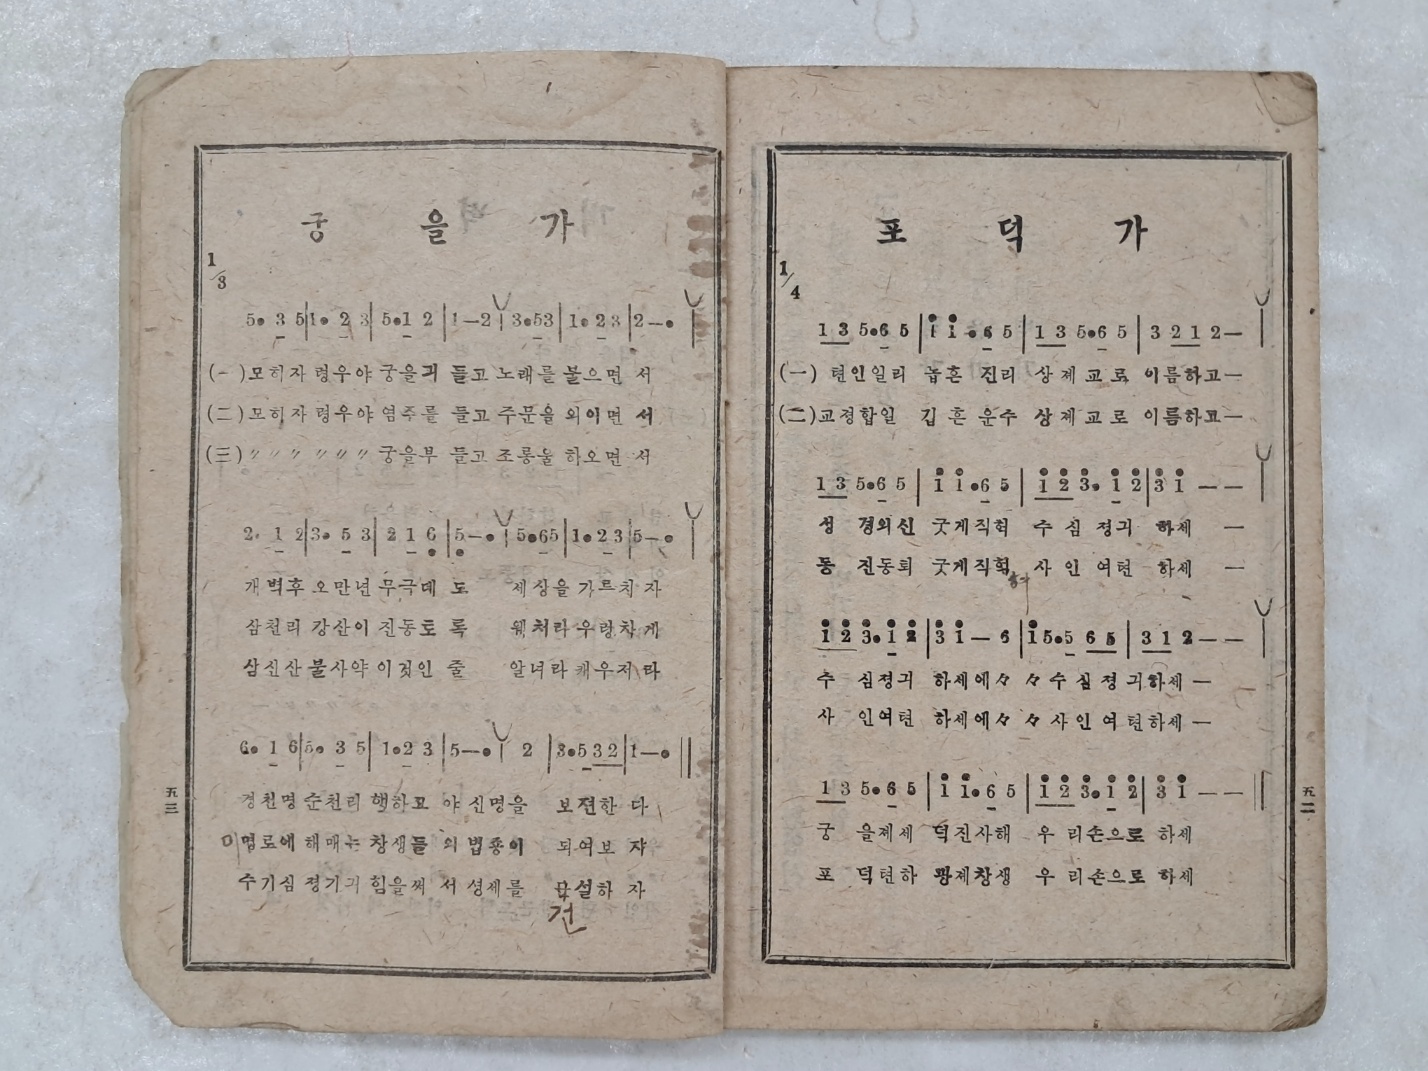 궁 을 가
1/3
5• 3 5|1• 2 3|5•1 2|1—2|3•53|1•23|2—•
(一)모히자 령우야 궁을긔 들고 노래를 불으면 서
(二)모히자 령우야 염주를 들고 주문을 외이면 서
(三)〃〃〃 〃〃〃 궁을부 들고 조롱을 하오면 서
2• 1 2|3• 5 3|2 1 6|5—•|5•65|1•23|5—•
개벽후 오만년 무극대 도 세상을 가르치 자
삼천리 강산이 진동토 록 웨처라 우렁차게
삼신산 불사약 이것인 줄 알너라 깨우저 라
6• 1 6|5• 3 5|1•2 3|5—•|2|3•532|1—•
경천명 순천리 행하고 야 신명을 보젼한 다
미명로에 해매는 창생들 의 법종이 되여보 자
수기심 졍기긔 힘을써 서 셩세를 설하 자
건
五三
포 덕 가
1/4
1 3 5•6 5|1 1•6 5|1 3 5•6 5|3 2 1 2—
(一) 텬인일리 놉흔 진리 상제교로 이름하고—
(二)교정합일 깁흔 운수 상제교로 이름하고—
1 3 5•6 5|1 1•6 5|1 2 3•1 2|3 1 — —
성 경의신 굿게직혀 수 심 졍긔 하세 —
동 진동퇴 굿게직혀 사 인 여텬 하세 —
1 2 3•1 2|3 1—6|1 5•5 6 5|3 1 2——
수 심졍긔 하세에々 々수심졍긔하세—
사 인여텬 하세에々 々사인여텬하세—
1 3 5•6 5|1 1•6 5|1 2 3•1 2|3 1——
궁 을제세 덕진사해 우 리손으로 하세
포 덕텬하 광제창생 우 리손으로 하세
五二